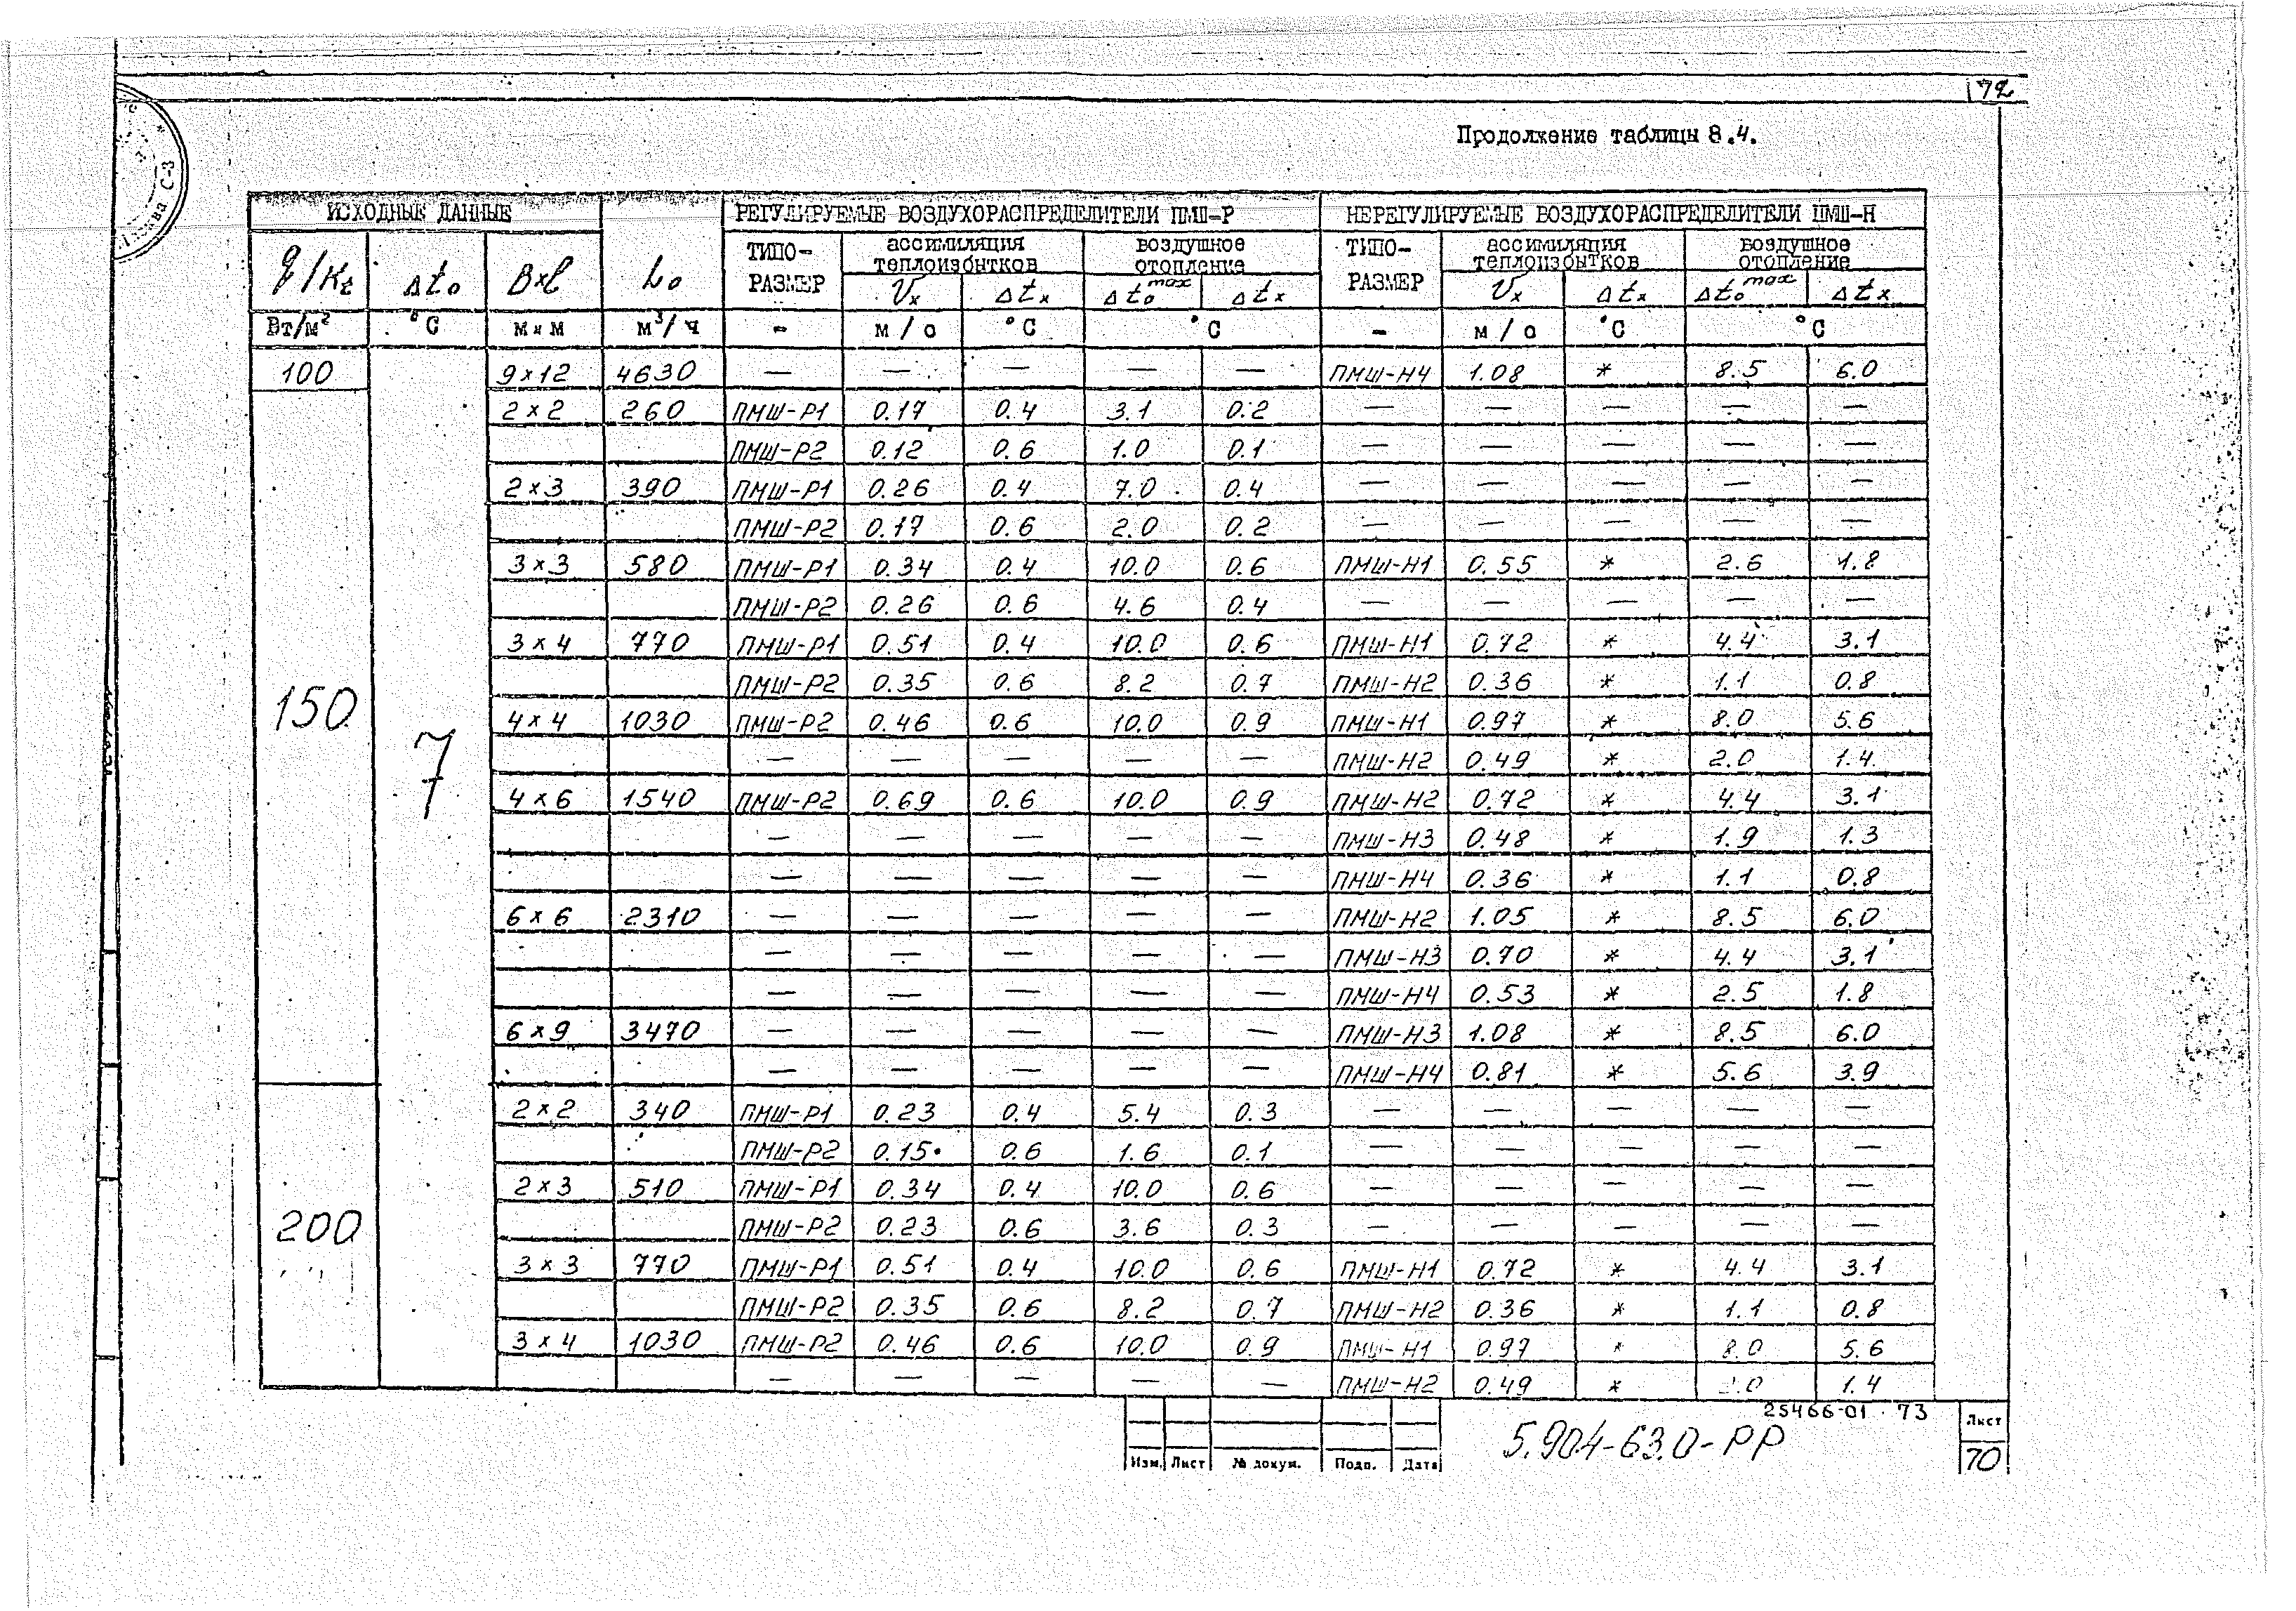 72
Продолжение таблицы 8.4.
ИСХОДНЫЕ ДАННЫЕ | L₀ | РЕГУЛИРУЕМЫЕ ВОЗДУХОРАСПРЕДЕЛИТЕЛИ ПМШ-Р | НЕРЕГУЛИРУЕМЫЕ ВОЗДУХОРАСПРЕДЕЛИТЕЛИ ПМШ-Н
q/Kt | Δt₀ | Bxl | ТИПО-РАЗМЕР | ассимиляция теплоизбытков | воздушное отопление | ТИПО-РАЗМЕР | ассимиляция теплоизбытков | воздушное отопление
Vx | Δtx | Δt₀ max | Δtx | Vx | Δtx | Δt₀ max | Δtx
Вт/м² | °С | м×м | м³/ч | - | м/с | °С | °С | - | м/с | °С | °С
100 | 7 | 9×12 | 4630 | — | — | — | — | — | ПМШ-Н4 | 1.08 | * | 8.5 | 6.0
150 | 2×2 | 260 | ПМШ-Р1 | 0.17 | 0.4 | 3.1 | 0.2 | — | — | — | — | —
ПМШ-Р2 | 0.12 | 0.6 | 1.0 | 0.1 | — | — | — | — | —
2×3 | 390 | ПМШ-Р1 | 0.26 | 0.4 | 7.0 | 0.4 | — | — | — | — | —
ПМШ-Р2 | 0.17 | 0.6 | 2.0 | 0.2 | — | — | — | — | —
3×3 | 580 | ПМШ-Р1 | 0.34 | 0.4 | 10.0 | 0.6 | ПМШ-Н1 | 0.55 | * | 2.6 | 1.8
ПМШ-Р2 | 0.26 | 0.6 | 4.6 | 0.4 | — | — | — | — | —
3×4 | 770 | ПМШ-Р1 | 0.51 | 0.4 | 10.0 | 0.6 | ПМШ-Н1 | 0.72 | * | 4.4 | 3.1
ПМШ-Р2 | 0.35 | 0.6 | 8.2 | 0.7 | ПМШ-Н2 | 0.36 | * | 1.1 | 0.8
4×4 | 1030 | ПМШ-Р2 | 0.46 | 0.6 | 10.0 | 0.9 | ПМШ-Н1 | 0.97 | * | 8.0 | 5.6
— | — | — | — | — | ПМШ-Н2 | 0.49 | * | 2.0 | 1.4
4×6 | 1540 | ПМШ-Р2 | 0.69 | 0.6 | 10.0 | 0.9 | ПМШ-Н2 | 0.72 | * | 4.4 | 3.1
— | — | — | — | — | ПМШ-Н3 | 0.48 | * | 1.9 | 1.3
— | — | — | — | — | ПМШ-Н4 | 0.36 | * | 1.1 | 0.8
6×6 | 2310 | — | — | — | — | — | ПМШ-Н2 | 1.05 | * | 8.5 | 6.0
— | — | — | — | — | ПМШ-Н3 | 0.70 | * | 4.4 | 3.1
— | — | — | — | — | ПМШ-Н4 | 0.53 | * | 2.5 | 1.8
6×9 | 3470 | — | — | — | — | — | ПМШ-Н3 | 1.08 | * | 8.5 | 6.0
— | — | — | — | — | ПМШ-Н4 | 0.81 | * | 5.6 | 3.9
200 | 2×2 | 340 | ПМШ-Р1 | 0.23 | 0.4 | 5.4 | 0.3 | — | — | — | — | —
ПМШ-Р2 | 0.15 | 0.6 | 1.6 | 0.1 | — | — | — | — | —
2×3 | 510 | ПМШ-Р1 | 0.34 | 0.4 | 10.0 | 0.6 | — | — | — | — | —
ПМШ-Р2 | 0.23 | 0.6 | 3.6 | 0.3 | — | — | — | — | —
3×3 | 770 | ПМШ-Р1 | 0.51 | 0.4 | 10.0 | 0.6 | ПМШ-Н1 | 0.72 | * | 4.4 | 3.1
ПМШ-Р2 | 0.35 | 0.6 | 8.2 | 0.7 | ПМШ-Н2 | 0.36 | * | 1.1 | 0.8
3×4 | 1030 | ПМШ-Р2 | 0.46 | 0.6 | 10.0 | 0.9 | ПМШ-Н1 | 0.97 | * | 8.0 | 5.6
— | — | — | — | — | ПМШ-Н2 | 0.49 | * | .0 | 1.4
25466-01 73
5.904-63.0-РР
Лист
70
Изм. | Лист | № докум. | Подп. | Дата